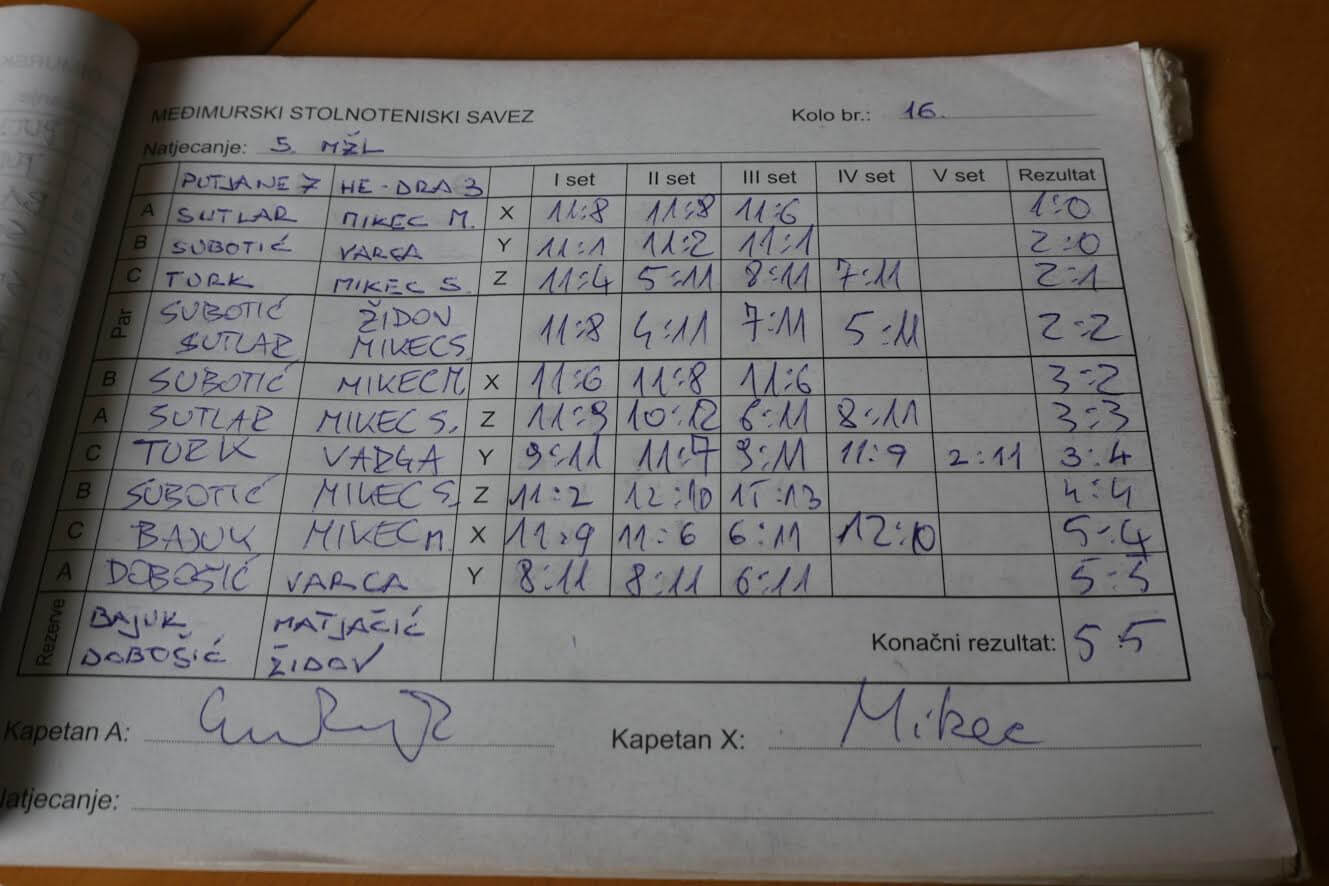 MEĐIMURSKI STOLNOTENISKI SAVEZ Kolo br.: 16.
Natjecanje: 5. MŽL
PUTJANE 7 HE-DRA 3 I set II set III set IV set V set Rezultat
A SUTLAR MIKEC M. X 11:8 11:8 11:6 1:0
B SUBOTIĆ VARGA Y 11:1 11:2 11:1 2:0
C TURK MIKEC S. Z 11:4 5:11 8:11 7:11 2:1
Par SUBOTIĆ ŽIDOV 11:8 4:11 7:11 5:11 2:2
SUTLAR MIKEC S
B SUBOTIĆ MIKEC M. X 11:6 11:8 11:6 3:2
A SUTLAR MIKEC S. Z 11:9 10:12 6:11 8:11 3:3
C TURK VARGA Y 9:11 11:7 9:11 11:9 2:11 3:4
B SUBOTIĆ MIKEC S. Z 11:2 12:10 15:13 4:4
C BAJUK MIKEC M. X 11:9 11:6 6:11 12:10 5:4
A DOBOŠIĆ VARGA Y 8:11 8:11 6:11 5:5
Rezerve BAJUK MATJAČIĆ Konačni rezultat: 5:5
DOBOŠIĆ ŽIDOV
Kapetan A: Kapetan X: Mikec
Natjecanje: